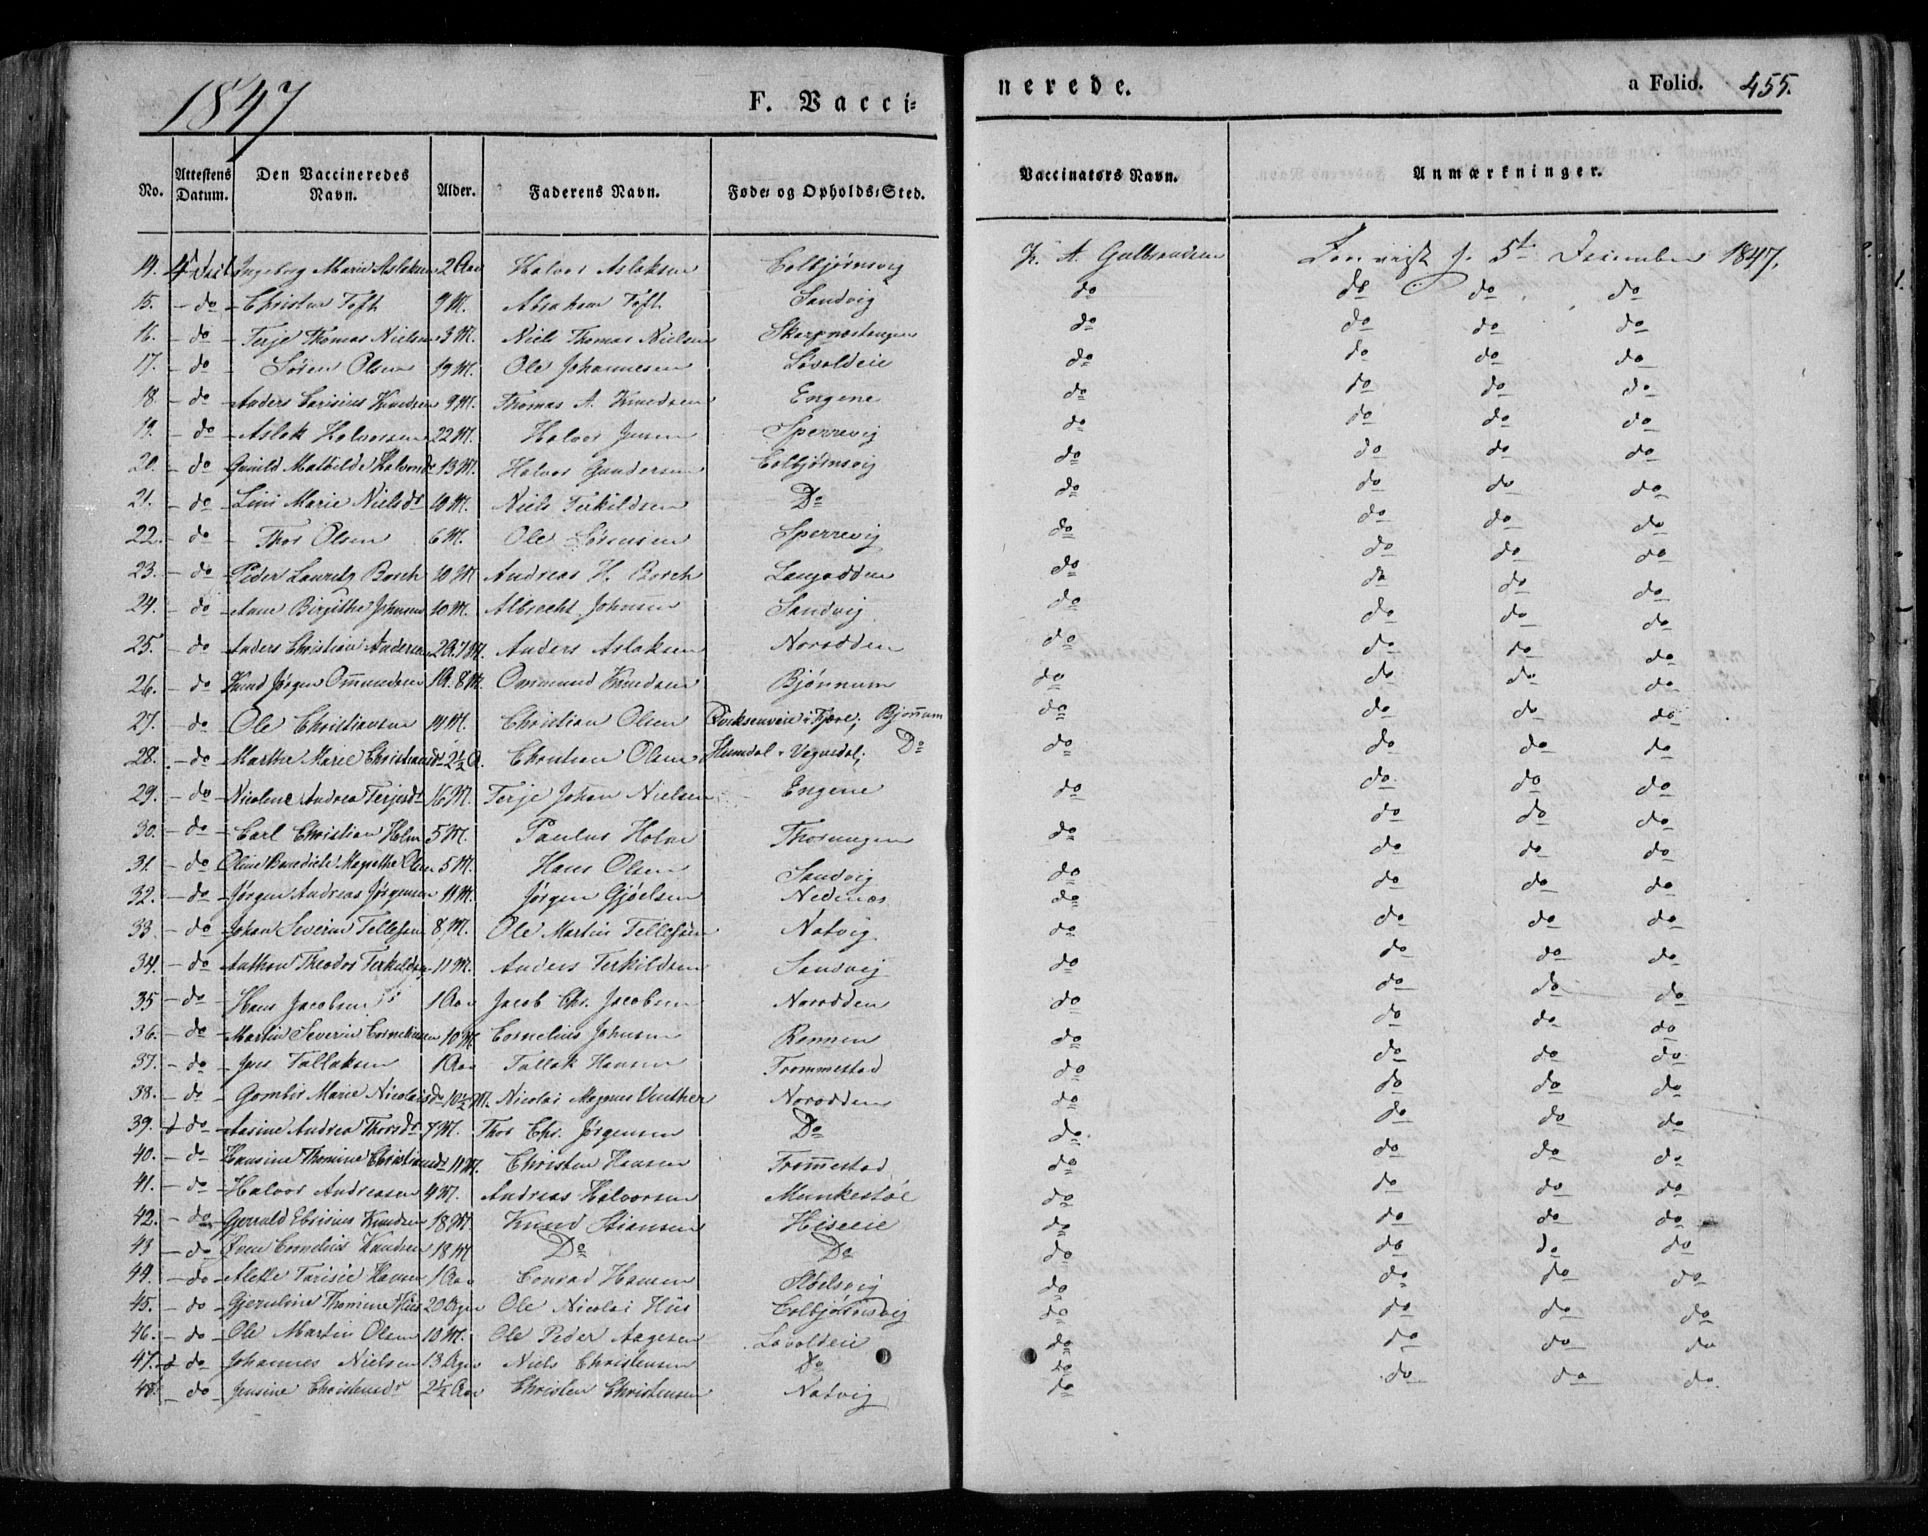 1847
F. Vaccinerede.
a Folio. 455.
No. | Attestens Datum. | Den Vaccineredes Navn. | Alder. | Faderens Navn. | Føde- og Opholds-Sted. | Vaccinators Navn. | Anmærkninger.
14. Ingeborg Marie Aslaksen 2 Aar Halvor Aslaksen Colbjørnsvig A. Gulbrandsen 5te December 1847.
15. - do - Christen Toft 9 M. Abraham Toft Sandvig do do do do
16. - do - Terje Thomas Nielsen 3 M. Niels Thomas Nielsen Skarpnæstangen do do do do
17. - do - Søren Olsen 19 M. Ole Johannesen Løvoldeie do do do do
18 - do - Anders Knudsen 9 M. Thomas A. Knudsen Engene do do do do
19. - do - Aslak Halvorsen 22 M. Halvor Jensen Sperrevig do do do do
20. - do - Gunild Mathilde Halvorsdr 13 M. Halvor Gundersen Colbjørnsvig do do do do
21. - do - Lini Marie Nielsdr 10 M. Niels Terkildsen Do do do do do
22. - do - Thor Olsen 6 M. Ole Sørensen Sperrevig do do do do
23. - do - Peder Lauritz Borch 10 M Andreas H. Borch Langodden do do do do
24. - do - Anne Birgithe Johnsen 10 M. Albrecht Johnsen Sandvig do do do do
25. - do - Anders Christian Andersen 2 A. 7 M. Anders Aslaksen Norodden do do do do
26. - do - Knud Jørgen Ommundsen 1 A. 8 M. Ommund Knudsen Bjønnum do do do do
27. - do - Ole Christiansen 14 M. Christian Olsen i Fjære; Bjønnum do do do do
28. - do - Marthe Marie Christiansdr 2½ A. Christian Olsen Humdal i Vegusdal; Do do do do do
29. - do - Nicoline Andrea Terjesdr 16 M. Terje Johan Nielsen Engene do do do do
30. - do - Carl Christian Holm 5 M. Paulus Holm Thorungen do do do do
31. - do Oline Benedicte Magrethe Olsen 5 M. Hans Olsen Sandvig do do do do
32. - do - Jørgen Andreas Jørgensen 11 M. Jørgen Gjøelsen Nedenæs do do do do
33. - do - Johan Severin Tellefsen 8 M. Ole Martin Tellefsen Natvig do do do do
34. - do Anthon Theodor Terkildsen 11 M. Anders Terkildsen Sandvig do do do do
35 - do - Hans Jacobsen 1 Aar Jacob Chr. Jacobsen Norodden do do do do
36. - do - Martin Severin Corneliusen 10 M. Cornelius Johnsen Rønnen do do do do
37. - do - Jens Tallaksen 1 Aar Tallak Hansen Frommestad do do do do
38. - do Marie Nicolaisdr 10½ M. Nicolai Magnus Venther Norodden do do do do
39. - do - Aasine Andrea Thorsdr 7 M. Thor Chr. Jørgensen Do do do do do
40. - do Hansine Thomine Christiansdr 11 M. Christen Hansen Frommestad do do do do
41. - do - Halvor Andreasen 4 M. Andreas Halvorsen Munkestøl do do do do
42. - do Knudsen 18 M Knud Stiansen Hiseeie do do do do
43 - do - Even Cornelius Knudsen 18 M Do Do do do do do
44. - do - Hansen 1 Aar Conrad Hansen Støelsvig do do do do
45. - do Gjeruline Thomine Hiis 20 Uger Ole Nicolai Hiis Colbjørnsvig do do do do
46. - do - Ole Martin Olsen 10 M. Ole Peder Aagesen Løvoldeie do do do do
47. - do - Johannes Nielsen 13 Uger Niels Christensen Do do do do do
48. - do - Jensine Christensdr 2½ Aar Christen Christensen Natvig do do do do